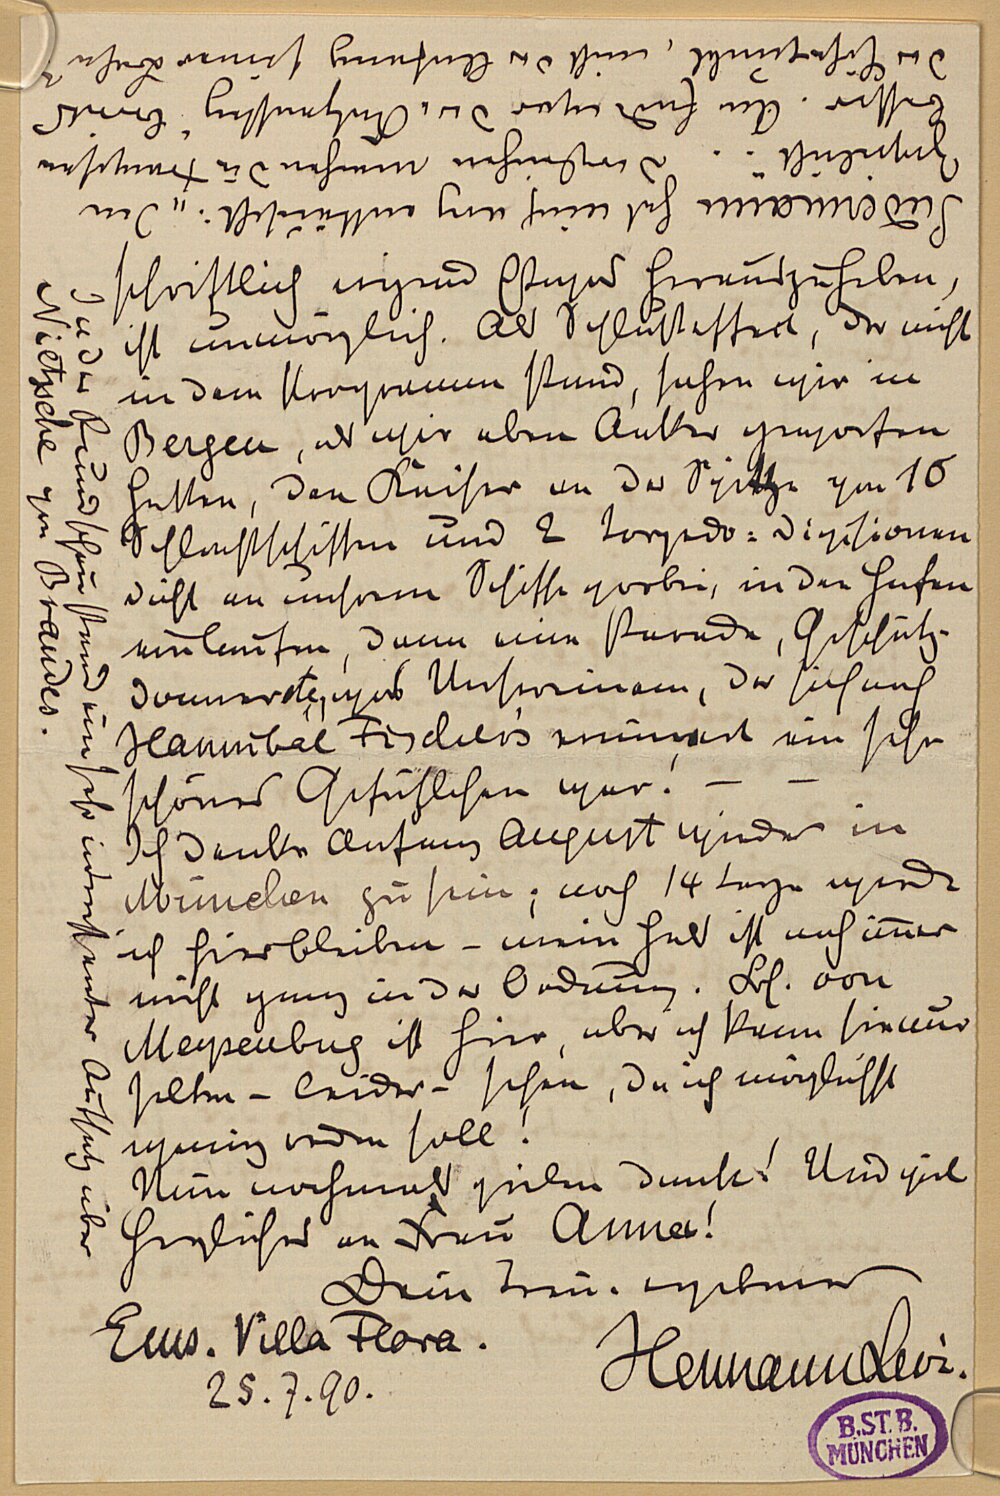 schriftlich irgend Etwas herauszuheben,
ist unmöglich. Als Schlußeffect, der nicht
in dem Programm stand, sahen wir in
Bergen, als wir eben Anker geworfen
hatten, den Kaiser an der Spitze von 16
Schlachtschiffen und 2 Torpedo=Divisionen
dicht an unserem Schiffe vorbei, in den Hafen
einlaufen, dann eine Parade, Geschütz-
donner etc, was Unsereinem, der sich noch
Hannibal Fischer's erinnert ein sehr
schönes Gefühlchen war! – –
Ich denke Anfang August wieder in
München zu sein; noch 14 Tage werde
ich hier bleiben – mein Hals ist noch im̅er
nicht ganz in der Ordnung. Frl. von
Meysenbug ist hier, aber ich kann sie nur
selten – leider – sehen, da ich möglichst
wenig reden soll!
Nun nochmals vielen Dank! Und viel
Herzliches an Frau Anna!
Dein treu. ergebener
Hermann Levi.
Ems. Villa Flora.
25.7.90.
Sudermann hat mich arg enttäuscht: "Der
Dergleichen machen die Franzosen
besser. Am Ende war die
der Höhepunkt, nicht der Anfang seiner
In der Rundschau stand ein sehr interessanter Aufsatz über
Nietzsche von Brandes.
B.ST.B.
MÜNCHEN